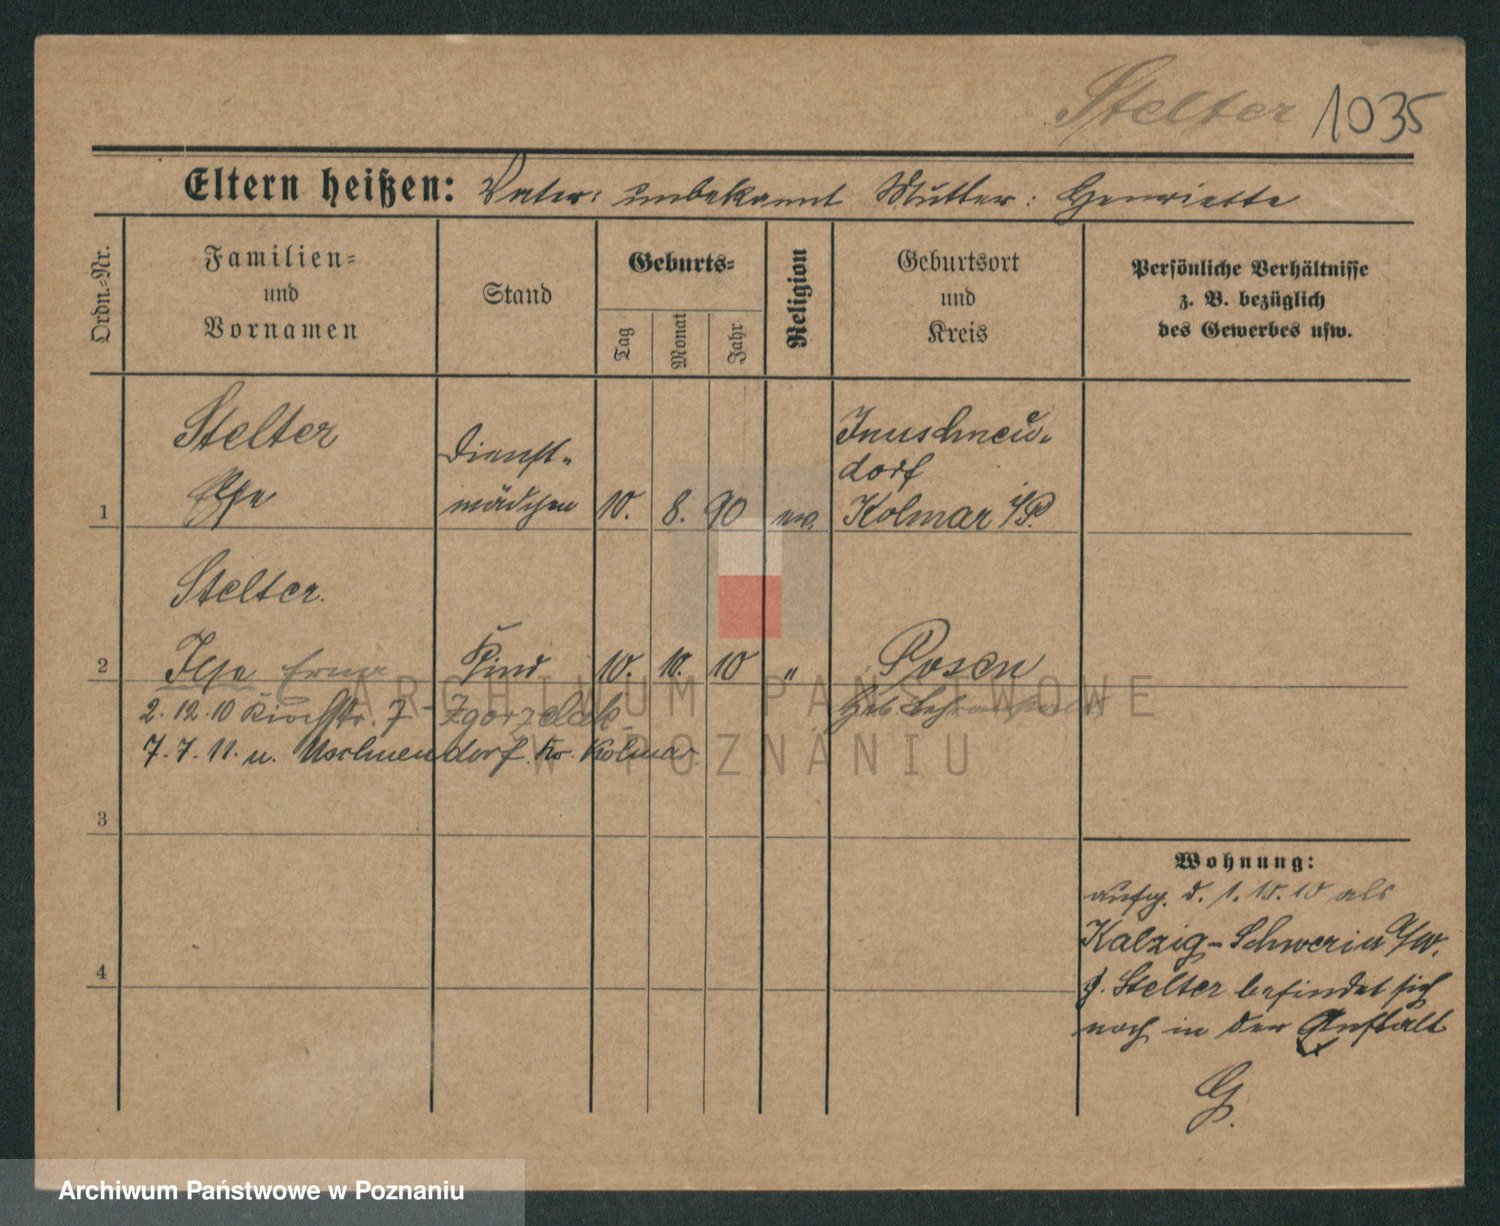 Stelter 1035
Eltern heißen: Vater: unbekannt Mutter: Henriette
Ordn.-Nr.
Familien-
und
Vornamen
Stand
Geburts-
Tag
Monat
Jahr
Religion
Geburtsort
und
Kreis
Persönliche Verhältnisse
z. B. bezüglich
des Gewerbes usw.
1
Stelter
Else
Dienst-
mädchen
10. 8. 90
dorf
Kolmar i/P.
2
Stelter.
Ilse Erna
Kind
10. 10. 10 "
Posen
2. 12. 10 Kirchstr. 7 Zgorzelak
7. 7. 11. n. Uschnendorf Kr. Kolmar
3
4
Wohnung:
d. 1. 10. 10 als
Kalzig-Schwerin a/W.
Stelter befindet sich
noch in der Anstalt
G.
ARCHIWUM PAŃSTWOWE
W POZNANIU
Archiwum Państwowe w Poznaniu